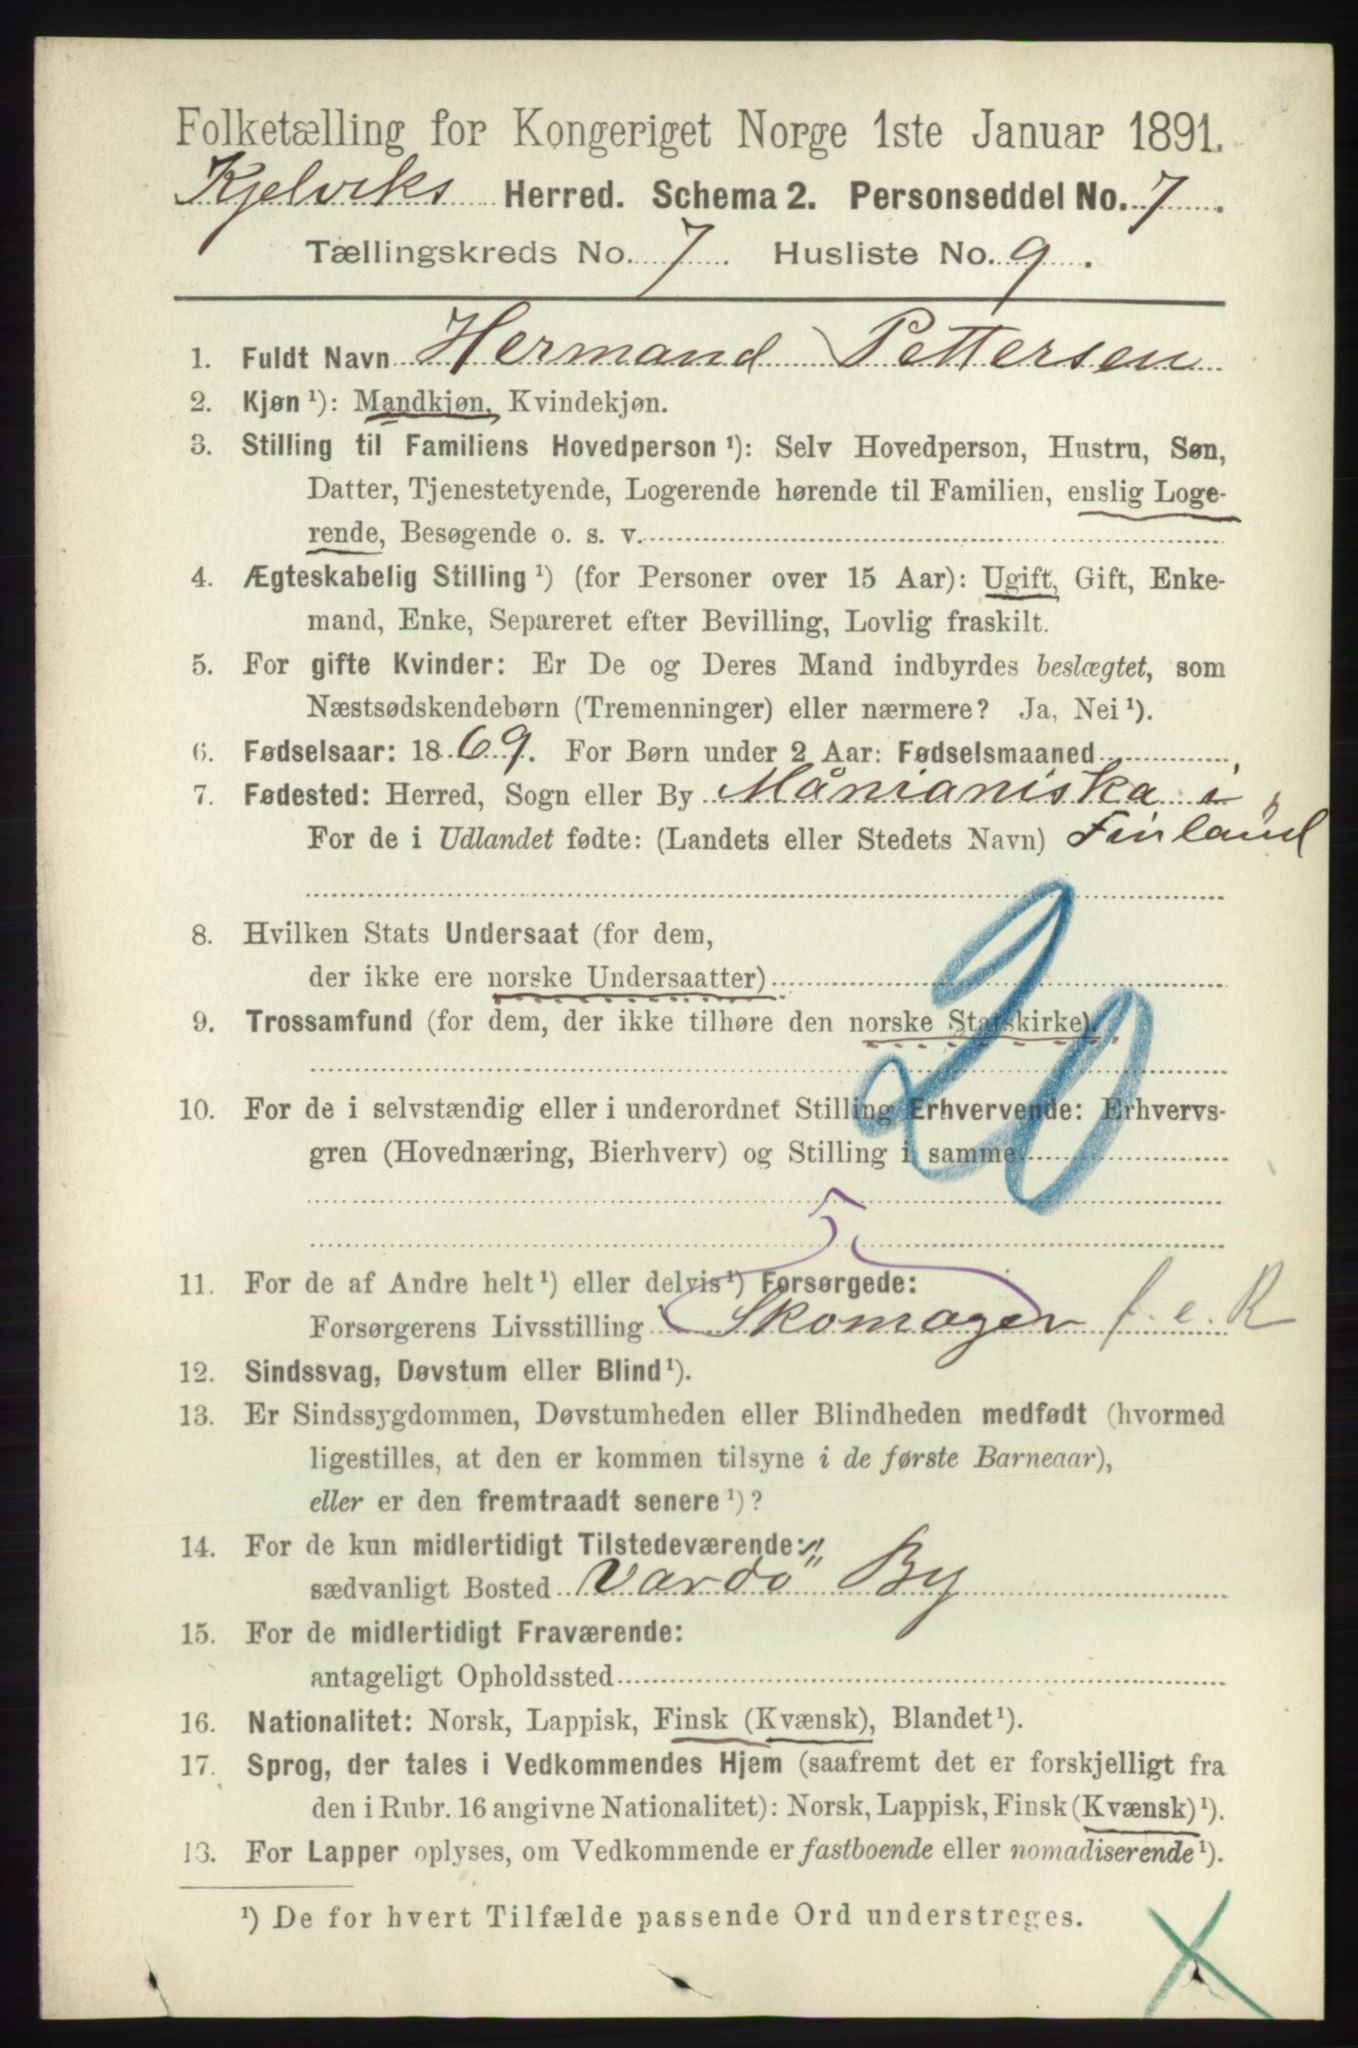 Folketælling for Kongeriget Norge 1ste Januar 1891.
Kjelviks Herred. Schema 2. Personseddel No. 7.
Tællingskreds No. 7. Husliste No. 9.
1. Fuldt Navn Hermand Pettersen
2. Kjøn ¹): Mandkjøn, Kvindekjøn.
3. Stilling til Familiens Hovedperson ¹): Selv Hovedperson, Hustru, Søn,
Datter, Tjenestetyende, Logerende hørende til Familien, enslig Loge-
rende, Besøgende o. s. v.
4. Ægteskabelig Stilling ¹) (for Personer over 15 Aar): Ugift, Gift, Enke-
mand, Enke, Separeret efter Bevilling, Lovlig fraskilt.
5. For gifte Kvinder: Er De og Deres Mand indbyrdes beslægtet, som
Næstsødskendebørn (Tremenninger) eller nærmere? Ja, Nei ¹).
6. Fødselsaar: 1869. For Børn under 2 Aar: Fødselsmaaned
7. Fødested: Herred, Sogn eller By Månianiska i
For de i Udlandet fødte: (Landets eller Stedets Navn) Finland
8. Hvilken Stats Undersaat (for dem,
der ikke ere norske Undersaatter)
9. Trossamfund (for dem, der ikke tilhøre den norske Statskirke).
20
10. For de i selvstændig eller i underordnet Stilling Erhvervende: Erhvervs-
gren (Hovednæring, Bierhverv) og Stilling i samme
5
11. For de af Andre helt ¹) eller delvis ¹) Forsørgede:
Forsørgerens Livsstilling Skomager f. e. R
12. Sindssvag, Døvstum eller Blind ¹).
13. Er Sindssygdommen, Døvstumheden eller Blindheden medfødt (hvormed
ligestilles, at den er kommen tilsyne i de første Barneaar),
eller er den fremtraadt senere ¹)?
14. For de kun midlertidigt Tilstedeværende:
sædvanligt Bosted Vardö By
15. For de midlertidigt Fraværende:
antageligt Opholdssted
16. Nationalitet: Norsk, Lappisk, Finsk (Kvænsk), Blandet ¹).
17. Sprog, der tales i Vedkommendes Hjem (saafremt det er forskjelligt fra
den i Rubr. 16 angivne Nationalitet): Norsk, Lappisk, Finsk (Kvænsk) ¹).
13. For Lapper oplyses, om Vedkommende er fastboende eller nomadiserende ¹).
¹) De for hvert Tilfælde passende Ord understreges.